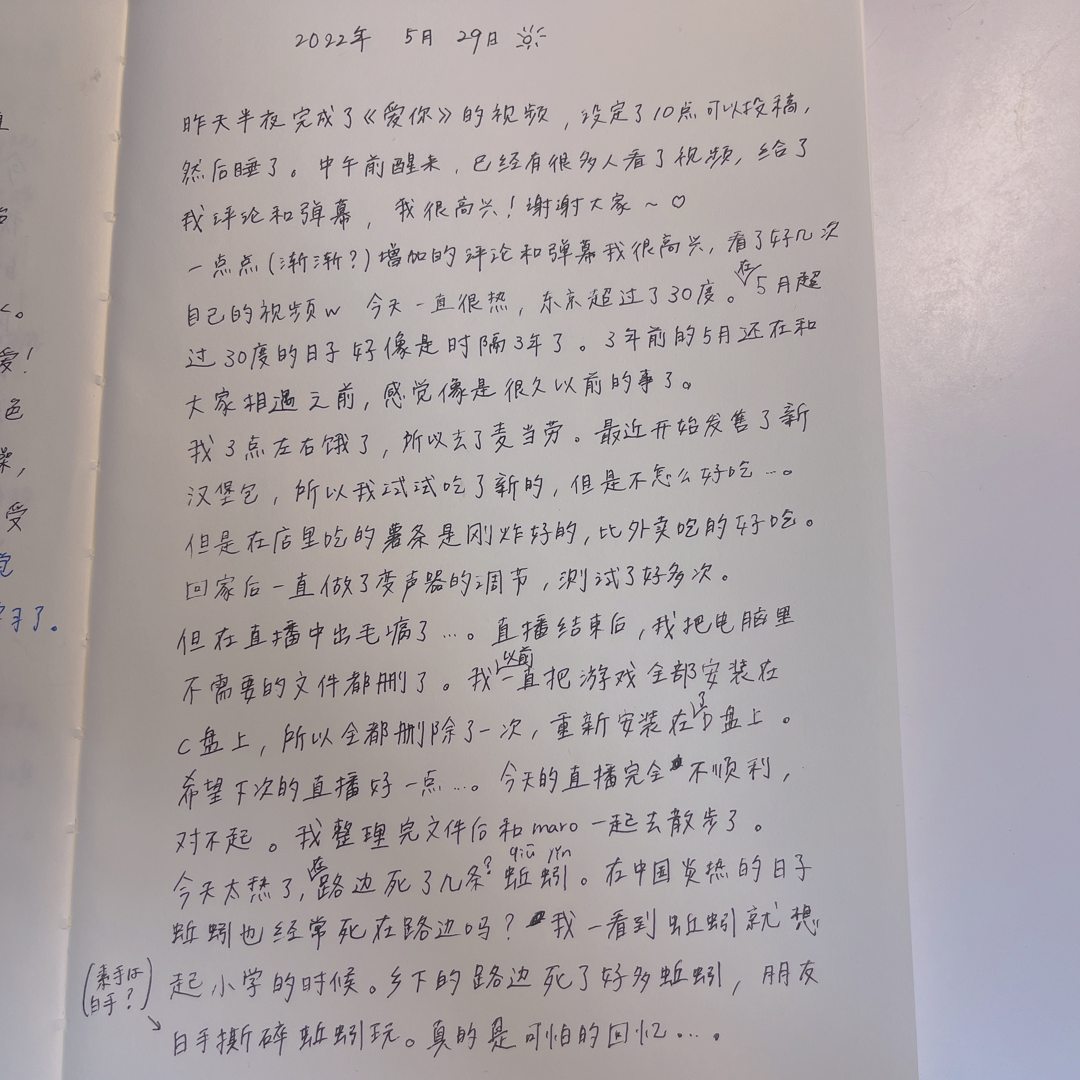 2022年 5月 29日
昨天半夜完成了《爱你》的视频,设定了10点可以投稿,
然后睡了。中午前醒来,已经有很多人看了视频,给了
我评论和弹幕,我很高兴!谢谢大家~♡
一点点(渐渐?)增加的评论和弹幕我很高兴,看了好几次
自己的视频w 今天一直很热,东京超过了30度。在5月超
过30度的日子好像是时隔3年了。3年前的5月还在和
大家相遇之前,感觉像是很久以前的事了。
我3点左右饿了,所以去了麦当劳。最近开始发售了新
汉堡包,所以我试试吃了新的,但是不怎么好吃…。
但是在店里吃的薯条是刚炸好的,比外卖吃的好吃。
回家后一直做了变声器的调节,测试了好多次。
但在直播中出毛病了…。直播结束后,我把电脑里
不需要的文件都删了。我以前一直把游戏全部安装在
C盘上,所以全都删除了一次,重新安装在了D盘上。
希望下次的直播好一点…。今天的直播完全不顺利,
对不起。我整理完文件后和maro一起去散步了。
qiū yǐn
今天太热了,在路边死了几条?蚯蚓。在中国炎热的日子
蚯蚓也经常死在路边吗?我一看到蚯蚓就想
起小学的时候。乡下的路边死了好多蚯蚓,朋友
(素手は
白手?)
白手撕碎蚯蚓玩。真的是可怕的回忆…。
直
く。
爱!
色
受
了。